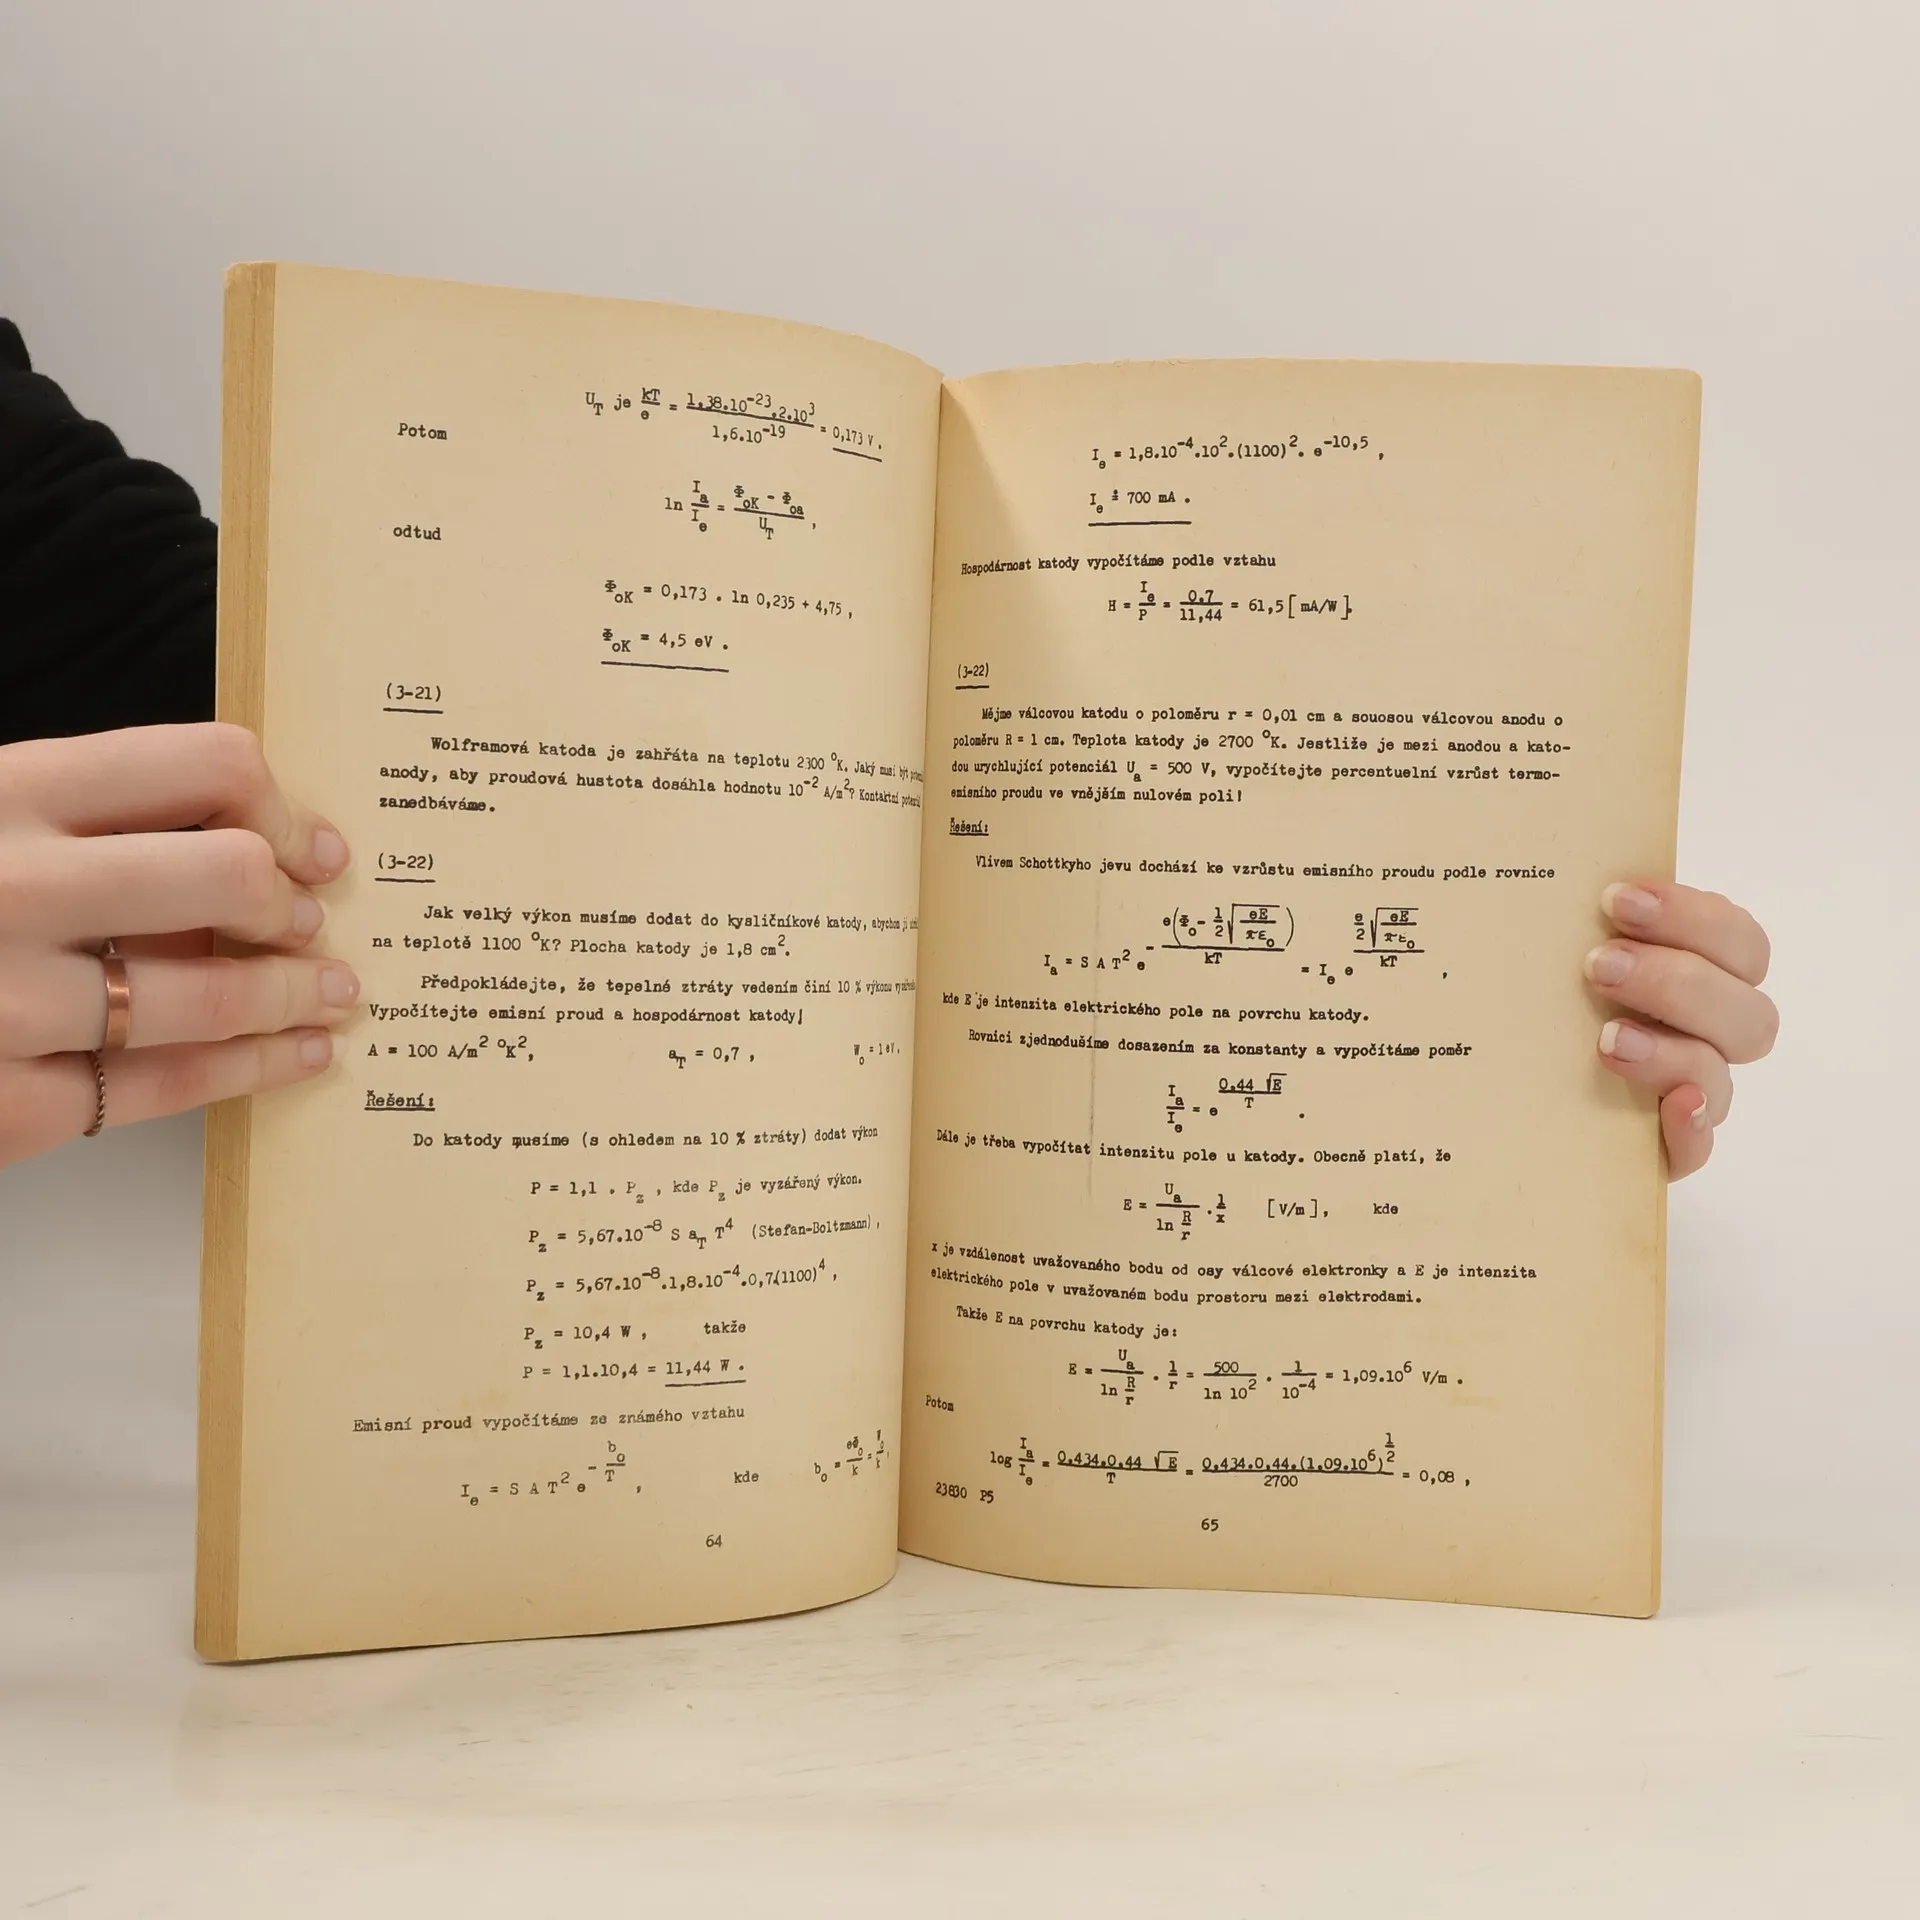 U_T je kT/e = 1,38.10^-23.2.10^3 / 1,6.10^-19 = 0,173 V.
Potom
ln I_a/I_e = (Φ_oK - Φ_oa) / U_T ,
odtud
Φ_oK = 0,173 . ln 0,235 + 4,75 ,
Φ_oK = 4,5 eV .
(3-21)
Wolframová katoda je zahřáta na teplotu 2300 °K. Jaký musí být
anody, aby proudová hustota dosáhla hodnotu 10^-2 A/m^2? Kontaktní
zanedbáváme.
(3-22)
Jak velký výkon musíme dodat do kysličníkové katody, abychom ji
na teplotě 1100 °K? Plocha katody je 1,8 cm^2.
Předpokládejte, že tepelné ztráty vedením činí 10 % výkonu
Vypočítejte emisní proud a hospodárnost katody!
A = 100 A/m^2 °K^2, a_T = 0,7 , W_o = 1eV.
Řešení:
Do katody musíme (s ohledem na 10 % ztráty) dodat výkon
P = 1,1 . P_z , kde P_z je vyzářený výkon.
P_z = 5,67.10^-8 S a_T T^4 (Stefan-Boltzmann) ,
P_z = 5,67.10^-8.1,8.10^-4.0,7.(1100)^4 ,
P_z = 10,4 W , takže
P = 1,1.10,4 = 11,44 W .
Emisní proud vypočítáme ze známého vztahu
I_e = S A T^2 e^(- b_o/T) , kde b_o = eΦ_o/k = W_o/k ,
64
I_e = 1,8.10^-4.10^2.(1100)^2. e^-10,5 ,
I_e ≐ 700 mA .
Hospodárnost katody vypočítáme podle vztahu
H = I_e/P = 0,7/11,44 = 61,5 [ mA/W ].
(3-22)
Mějme válcovou katodu o poloměru r = 0,01 cm a souosou válcovou anodu o
poloměru R = 1 cm. Teplota katody je 2700 °K. Jestliže je mezi anodou a kato-
dou urychlující potenciál U_a = 500 V, vypočítejte percentuelní vzrůst termo-
emisního proudu ve vnějším nulovém poli!
Řešení:
Vlivem Schottkyho jevu dochází ke vzrůstu emisního proudu podle rovnice
I_a = S A T^2 e^(- e(Φ_o - 1/2 √(eE/πε_o)) / kT) = I_e e^(e/2 √(eE/πε_o) / kT) ,
kde E je intenzita elektrického pole na povrchu katody.
Rovnici zjednodušíme dosazením za konstanty a vypočítáme poměr
I_a/I_e = e^(0,44 √E / T) .
Dále je třeba vypočítat intenzitu pole u katody. Obecně platí, že
E = U_a / ln R/r . 1/x [ V/m ], kde
x je vzdálenost uvažovaného bodu od osy válcové elektronky a E je intenzita
elektrického pole v uvažovaném bodu prostoru mezi elektrodami.
Takže E na povrchu katody je:
E = U_a / ln R/r . 1/r = 500 / ln 10^2 . 1/10^-4 = 1,09.10^6 V/m .
Potom
log I_a/I_e = 0,434.0,44 √E / T = 0,434.0,44.(1,09.10^6)^1/2 / 2700 = 0,08 ,
23830 P5
65